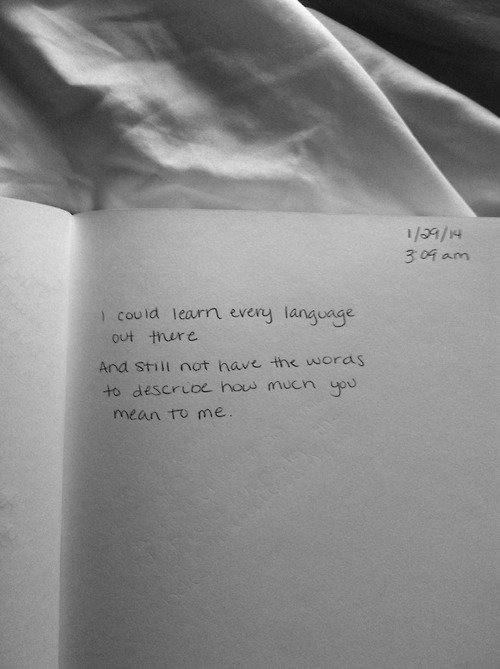 1/29/14
3:09 am
I could learn every language
out there
And still not have the words
to describe how much you
mean to me.